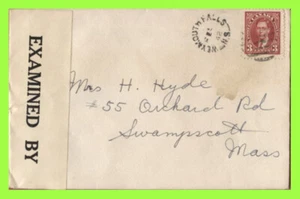 EXAMINED BY
WEYMOUTH FALLS N.S.
CANADA
3 3
Mrs H. Hyde
#55 Orchard Rd
Swampscott
Mass